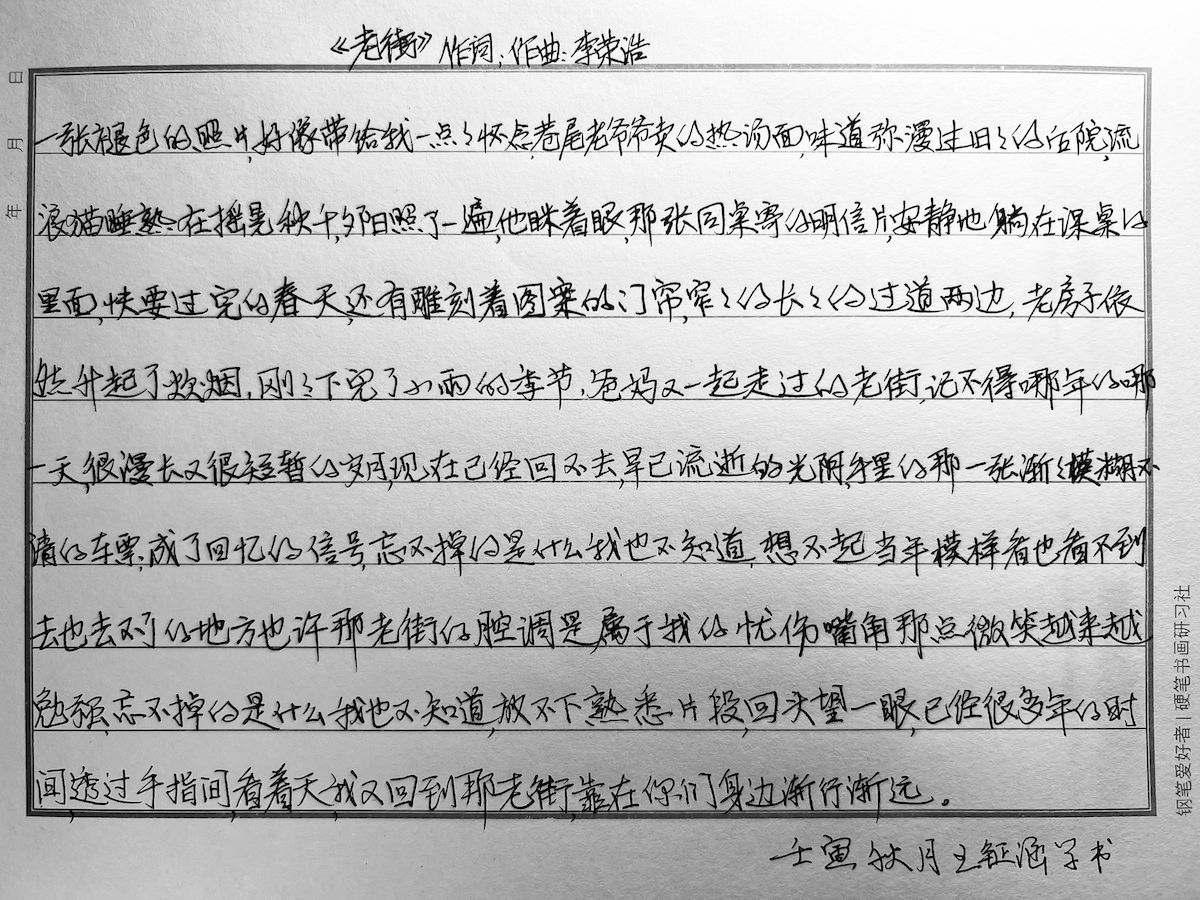 《老街》 作词；作曲：李荣浩
一张褪色的照片,好像带给我一点々怀念,巷尾老爷爷卖的热汤面,味道弥漫过旧々的后院,流
浪猫睡熟在摇晃秋千,夕阳照了一遍,他眯着眼,那张同桌寄的明信片,安静地躺在课桌的
里面,快要过完的春天,还有雕刻着图案的门帘,窄々的长々的过道两边,老房子依
然升起了炊烟,刚々下完了小雨的季节,爸妈又一起走过的老街,记不得哪年的哪
一天,很漫长又很短暂的岁月,现在已经回不去,早已流逝的光阴,手里的那一张渐々模糊不
清的车票,成了回忆的信号,忘不掉的是什么我也不知道,想不起当年模样看也看不到
去也去不了的地方也许那老街的腔调是属于我的忧伤嘴角那点微笑越来越
勉强,忘不掉的是什么我也不知道,放不下熟悉片段回头望一眼,已经很多年的时
间,透过手指间,看着天,我又回到那老街,靠在你们身边渐行渐远。
壬寅秋月王钲涵学书
年 月 日
钢笔爱好者|硬笔书画研习社